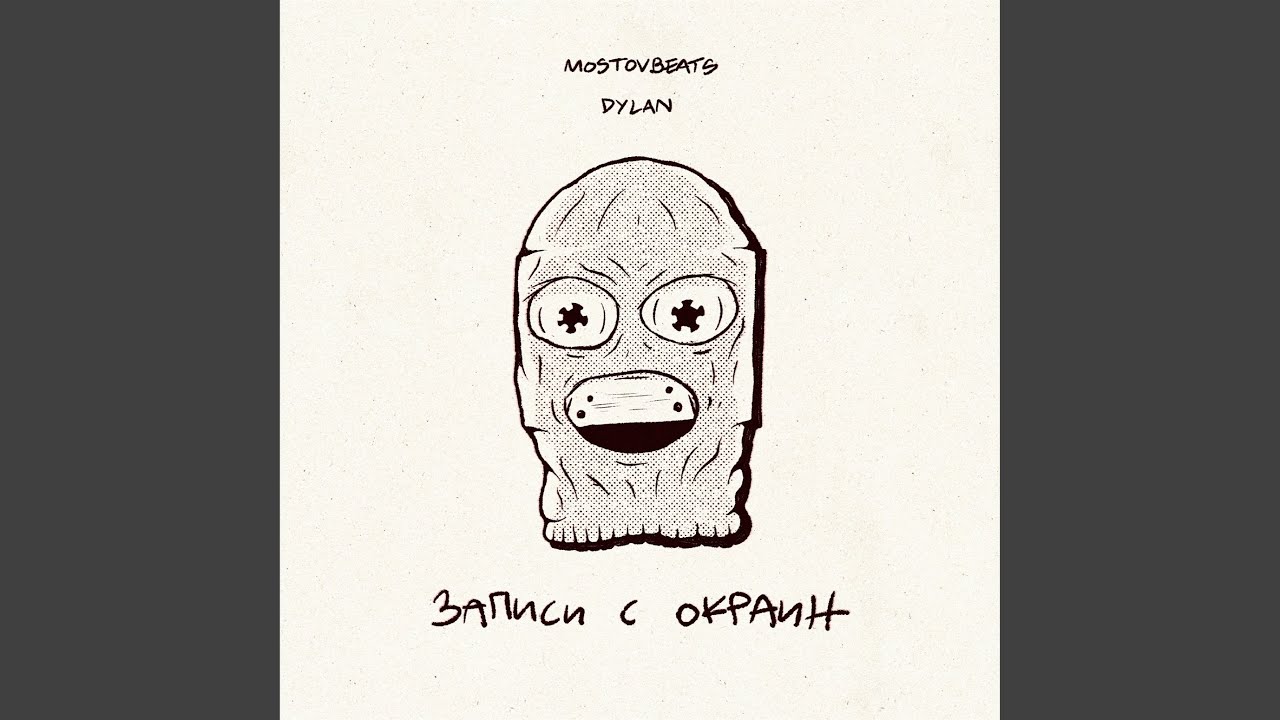 MOSTOVBEATS
DYLAN
ЗАПИСИ С ОКРАИН